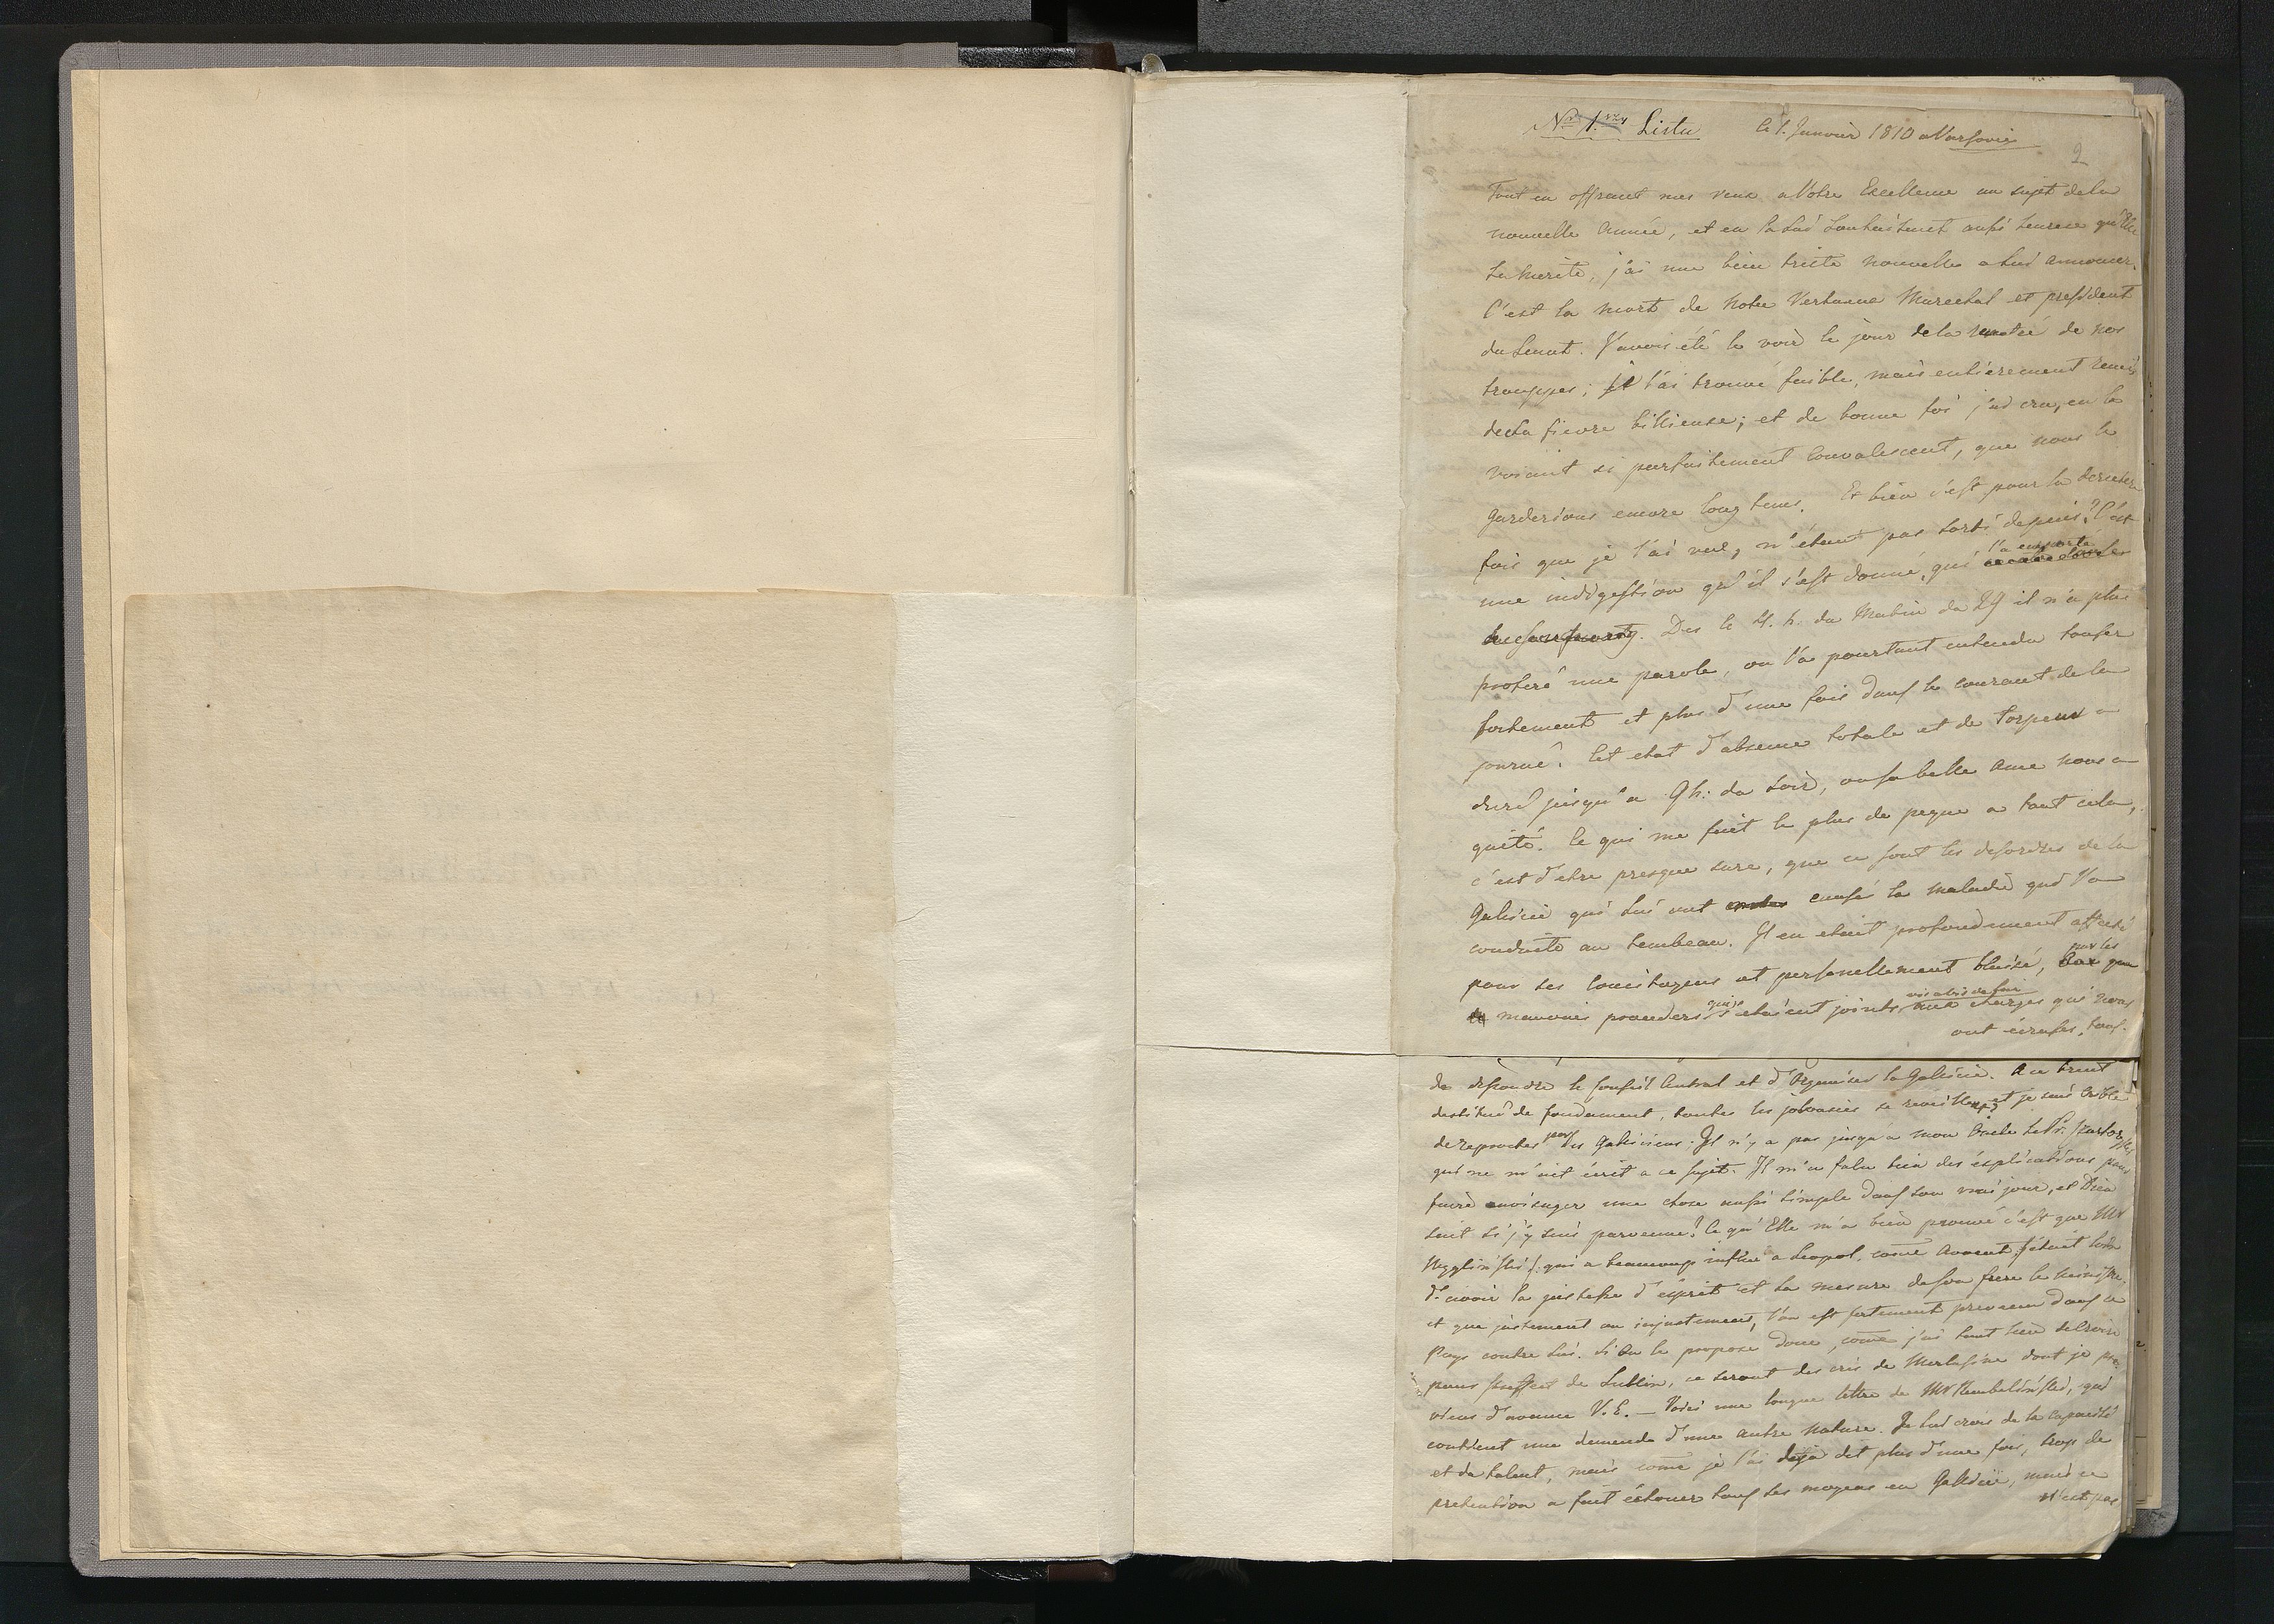 Nro 1szy Listu le 1. Janvier 1810 a Varsovie
2
Tout en offrant mes veux a Votre Excellence au sujet de la
nouvelle Année, et en la Lui Souhaitant aussi heureuse qu'Elle
la merite, j'ai une bien triste nouvelle a Lui annoncer.
C'est la mort de Notre Vertueux Marechal et president
du Senat. J'avois été le voir le jour de la rentrée de nos
trouppes; je l'ai trouvé faible, mais entièrement remis
de sa fievre billieuse; et de bonne foi j'ai cru, en le
voiant si parfaitement Convalescent, que nous le
garderions encore long tems. Et bien c'est pour la derniere
fois que je l'ai vu, n'étant pas sorti depuis? C'est
l'a emporté
une indigestion qu'il s'est donné, qui
Des le 4. h. du Matin du 29 il n'a plus
proferé une parole, on l'a pourtant entendu tousser
fortement et plus d'une fois dans le courant de la
journé. Cet etat d'absence totale et de torpeur a
duré jusqu'a 9 h: du Soir, ou sa belle ame nous a
quitté. Ce qui me fait le plus de peyne a tout cela,
c'est d'etre presque sure, que ce sont les desordres de la
Galicie qui Lui ont causé la maladie qui l'a
conduite au tombeau. Il en etait profondement affecté
par les
pour ses Concitoyens et personellement blessé, que
qui se vis a vis de lui
mauvais proceders s'etaient joints aux charges qui nous
ont écrasés, tous.
de dissoudre le Conseil Central et d'Organiser la Galicie. A ce bruit
destitué de fondement, toutes les jalousies se reveillent, et je suis Criblé
de reproches par les Galiciens. Il n'y a pas jusqu'a mon Oncle Le Pr: Czartoryski
qui ne m'ait écrit a ce sujet. Il m'a falu bien des éxplications pour
faire envisager une chose aussi simple dans son vrai jour, et Dieu
sait si j'y suis parvenue? Ce qu'Elle m'a bien prouvé c'est que Mr
Węgliński /: qui a beaucoup influé a Leopol, come Avocat, était loin
d'avoir la justesse d'ésprit et la mesure de son frere le Ministre,
et que justement ou injustement, l'on est fortement prevenu dans ce
Pays contre Lui. Si On le propose donc, come j'ai tout lieu de Croire
pour prefect de Lublin, ce seront des cris de Merlusine dont je pre-
viens d'avance V. E. — Voici une longue lettre de Mr Rembieliński, qui
contient une demande d'une autre Nature. Je lui crois de la Capacité
et du talent, mais come je l'ai deja dit plus d'une fois, trop de
pretention a fait échouer tous ses moyens en Gallicie, mais ce
n'est pas